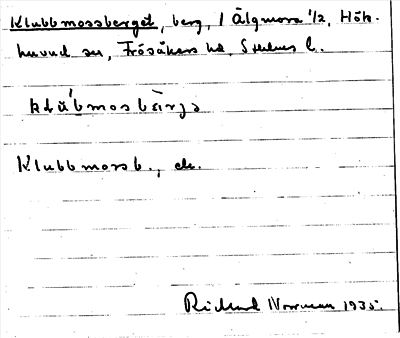 Klubbmossberget, berg, 1 Älgmora 1/2, Hök-
huvud sn, Frösåkers hd, Sthlms l.
klŭ´bmosbæ̀rjə
Klubbmossb., ds.
Richard Norrman 1935.